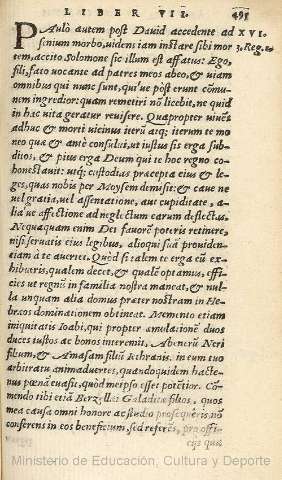 LIBER VII. 491
PAulò autem post Dauid accedente ad XVI
sinium morbo, uidens iam instare sibi mor 3. Reg. 2
tem, accito Solomone sic illum est affatus: Ego,
fili, fato uocante ad patres meos abeo, & uiam
omnibus qui nunc sunt, qui´ue pòst erunt cõmu-
nem ingredior: quam remetiri nõ licebit, ne quid
in hac uita geratur reuisere. Quapropter uiuens
adhuc & morti uicinus iterũ atq; iterum te mo
neo que & antè consului, ut iustus sis erga subdi-
ditos, & pius erga Deum qui te hoc regno co-
honestauit: utq; custodias præcepta eius & le-
ges, quas nobis per Moysem demisit: & caue ne
uel gratia, uel assentatione, aut cupiditate, a-
lia´ue affectione ad neglectum earum deflectas.
Nequaquam enim Dei fauorē poteris retinere,
nisi seruatis eius legibus, alioqui suã prouiden-
tiam à te auertet. Quòd si talem te erga eũ ex-
hibueris, qualem decet, & qualē optamus, effi-
cies ut regnũ in familia nostra maneat, & nul-
la unquam alia domus præter nostram in He-
bræos dominationem obtineat. Memento etiam
iniquitatis Ioabi, qui propter æmulationem duos
duces iustos ac bonos interemit, Abenerũ Neri
filium, & Amasam filiũ Iethranis. in eum tuo
arbitratu animaduertes, quandoquidem hacte-
nus pœnã euasit, quòd meipso esset potētior. Cõ-
mendo tibi etiã Berzellei Galadite filios, quos
mea causa omni honore ac studio prosequêris. nõ
conferens in eos beneficium, sed referēs, pro offi-
cijs quæ
Ministerio de Educación, Cultura y Deporte